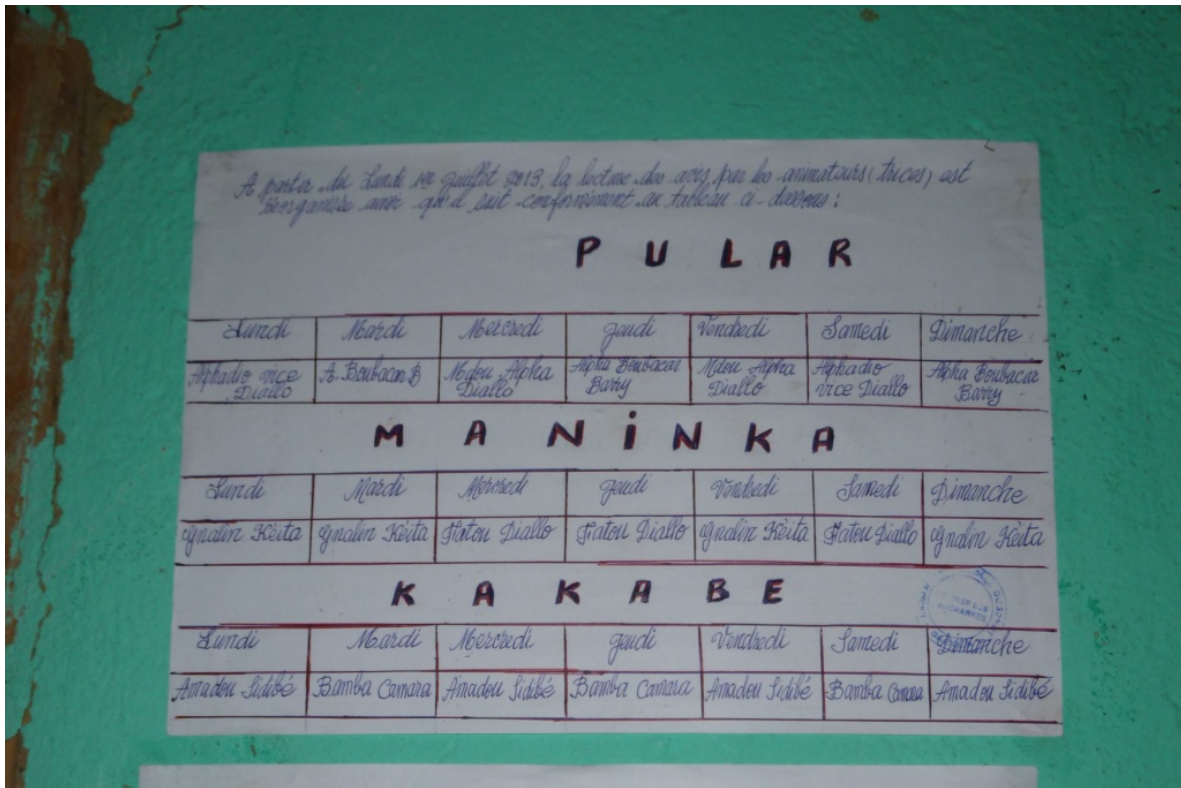 A partir du Lundi 1er juillet 2013, la lecture des avis par les animateurs (trices) est
reorganisée ainsi qu'il suit conformément au tableau ci-dessous :
PULAR
Lundi Mardi Mercredi Jeudi Vendredi Samedi Dimanche
Alphadio vice Diallo A. Boubacar B Mdou Alpha Diallo Alpha Boubacar Barry Mdou Alpha Diallo Alphadio vice Diallo Alpha Boubacar Barry
MANiNKA
Lundi Mardi Mercredi Jeudi Vendredi Samedi Dimanche
Gnalin Kéita Gnalin Kéita Fatou Diallo Fatou Diallo Gnalin Kéita Fatou Diallo Gnalin Kéita
KAKABE
Lundi Mardi Mercredi Jeudi Vendredi Samedi Dimanche
Amadou Sidibé Bamba Camara Amadou Sidibé Bamba Camara Amadou Sidibé Bamba Camara Amadou Sidibé